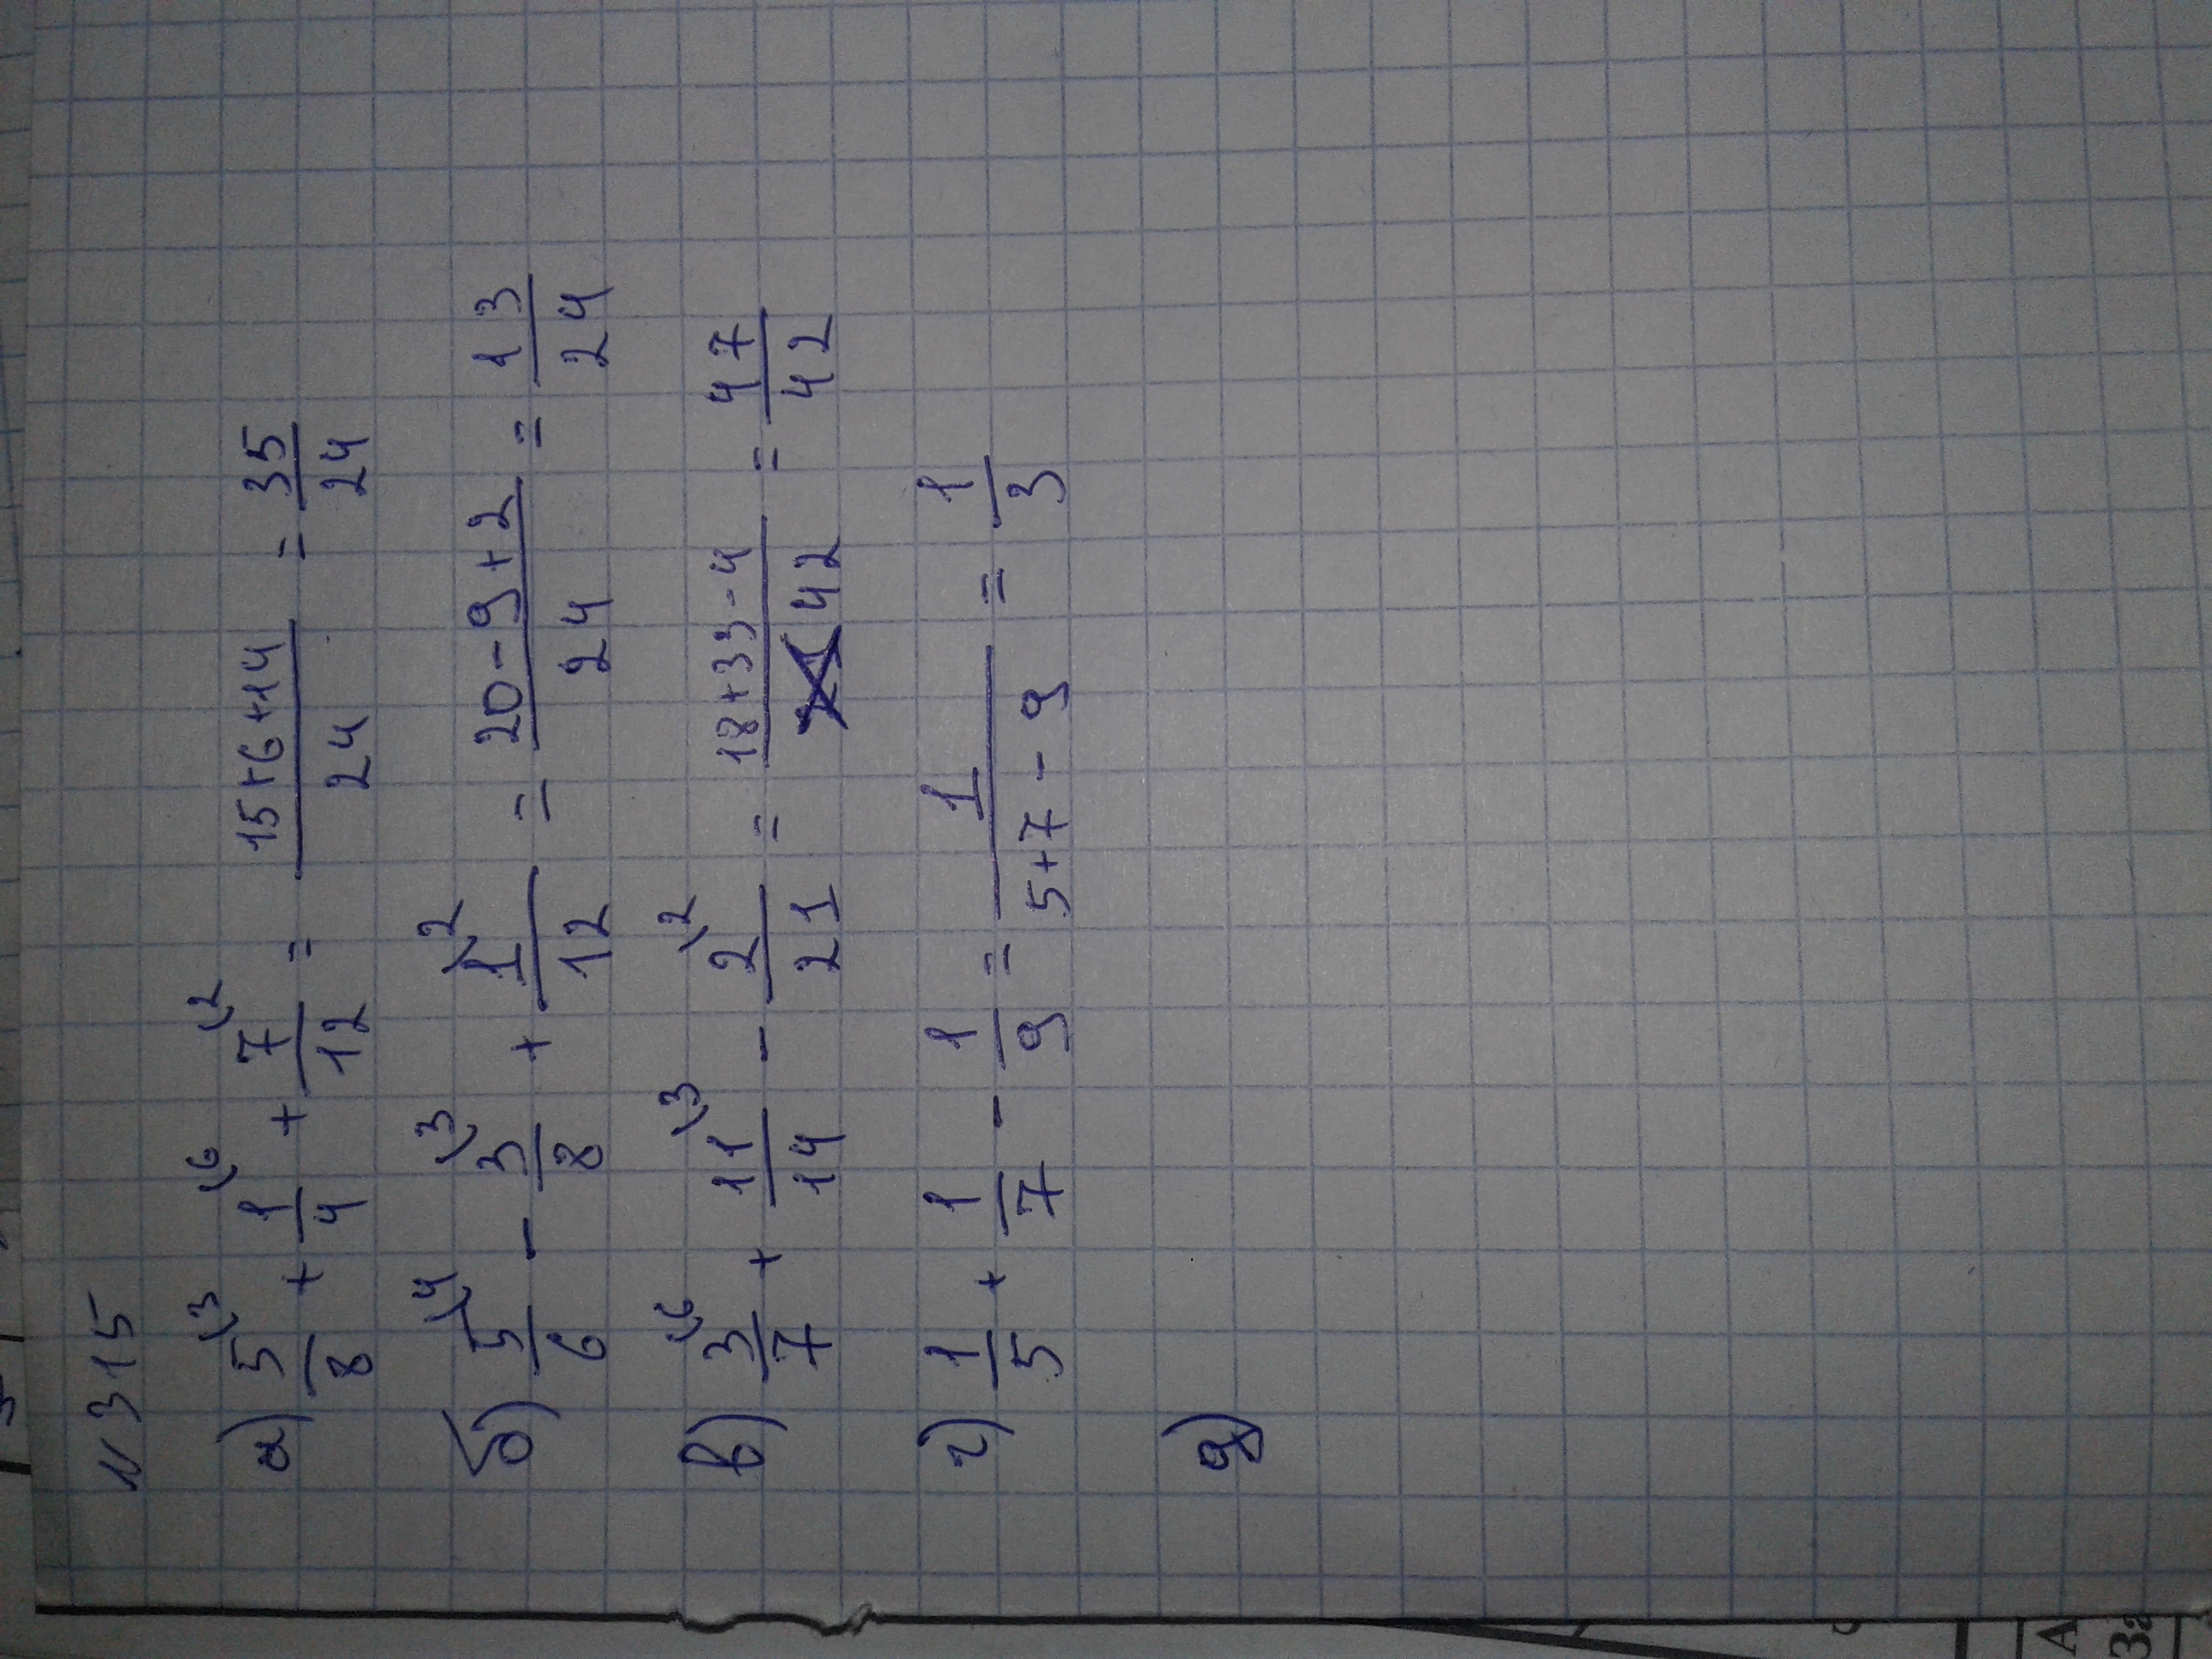 N 315
а) 5/8 \3 + 1/4 \6 + 7/12 \2 = (15+6+14)/24 = 35/24
б) 5/6 \4 - 3/8 \3 + 1/12 \2 = (20-9+2)/24 = 13/24
в) 3/7 \6 + 11/14 \3 - 2/21 \2 = (18+33-4)/42 = 47/42
г) 1/5 + 1/7 - 1/9 = 1/(5+7-9) = 1/3
д)